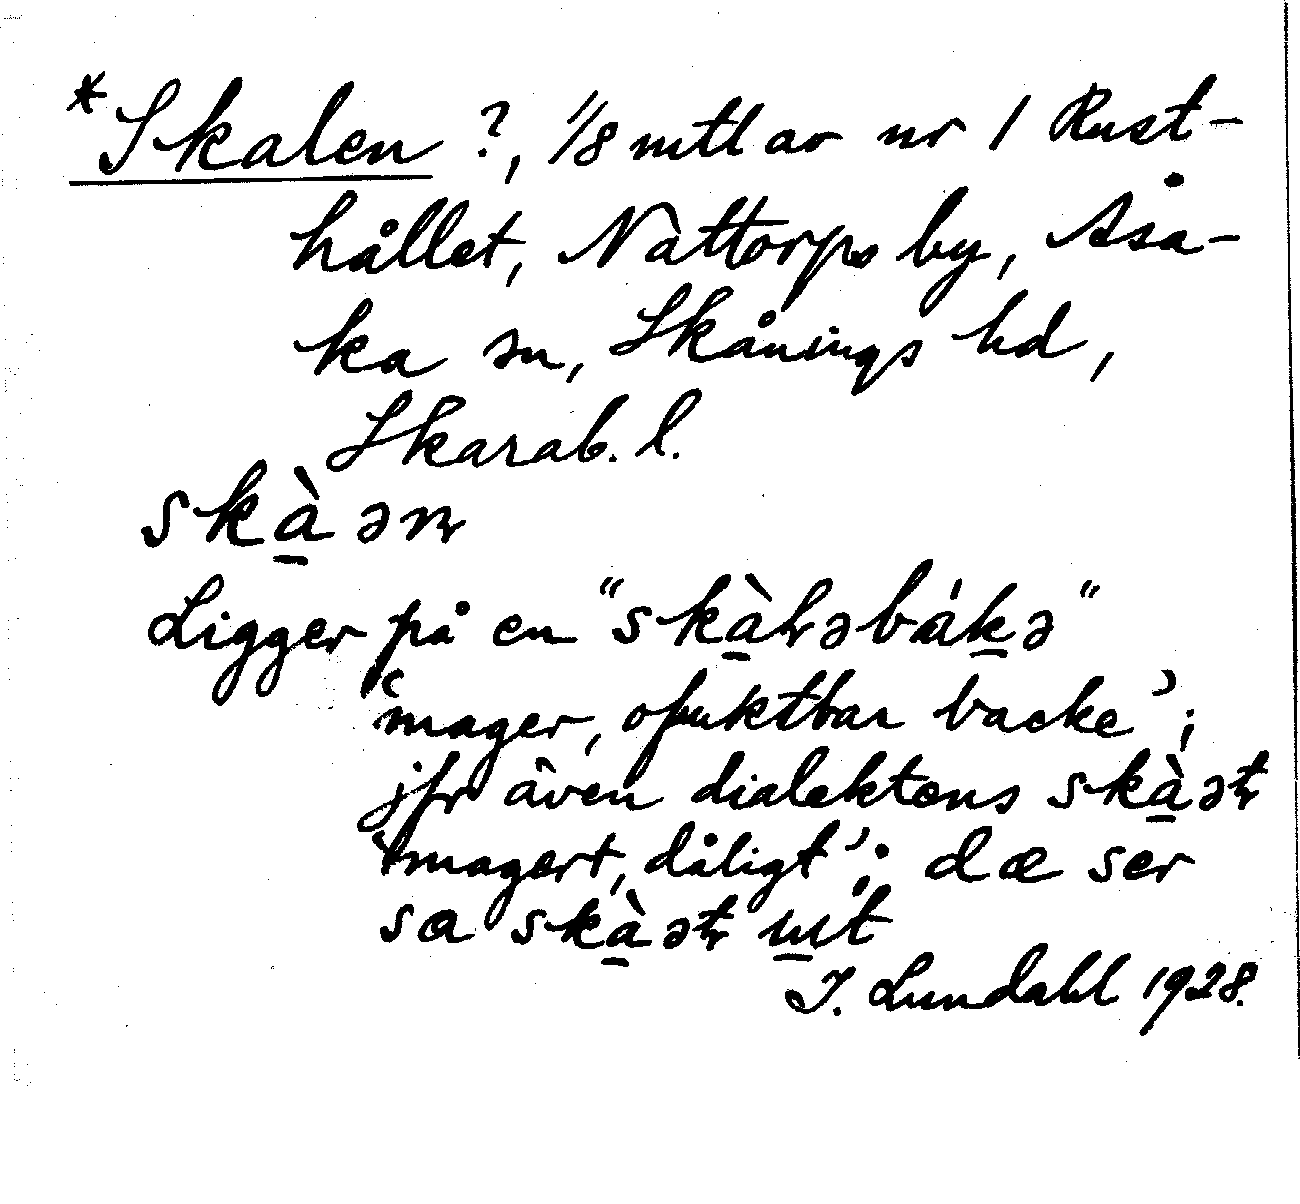 *Skalen ?, 1/8 mtl av nr 1 Rust-
hållet, Nattorps by, Åsa-
ka sn, Skånings hd,
Skarab. l.
skàən
Ligger på en "skàləbákə"
'mager, ofruktbar backe';
jfr även dialektens skàət
'magert, dåligt'; dæ ser
sa skàət ut
I. Lundahl 1928.